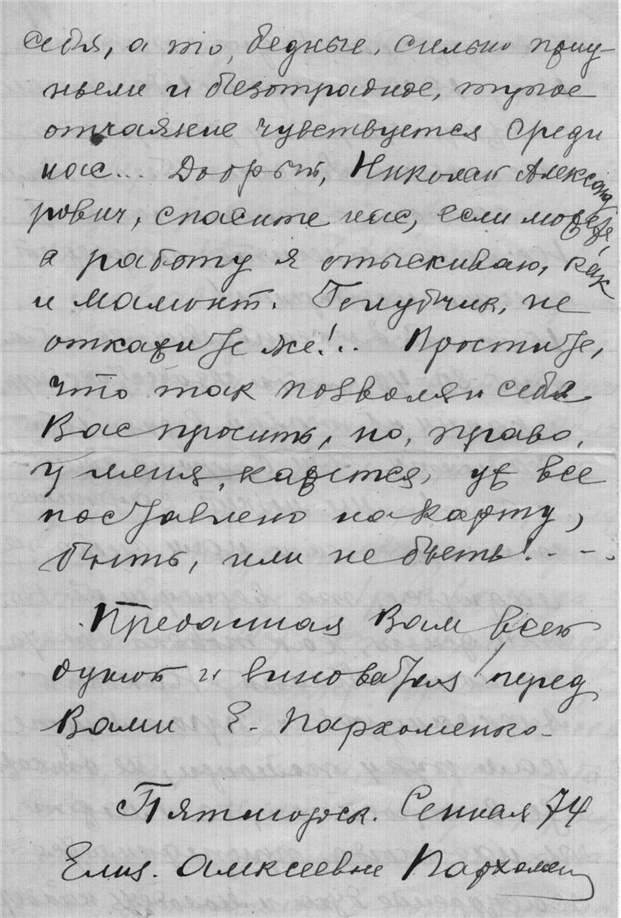 себя, а то, бедные, сильно приу-
ныли и безотрадное, тупое
отчаяние чувствуется среди
нас... Добрый, Николай Александ
рович, спасите нас, если можете,
а работу я отыскиваю, как
и мамонт. Голубчик, не
откажите же!.. Простите,
что так позволяю себя
Вас просить, но, право,
у меня, кажется, уж все
поставлено на карту,
быть, или не быть!...
Преданная Вам всею
душою и виноватая перед
Вами Е. Пархоменко.
Пятигорск. Сенная 74
Елиз. Алексеевне Пархомен